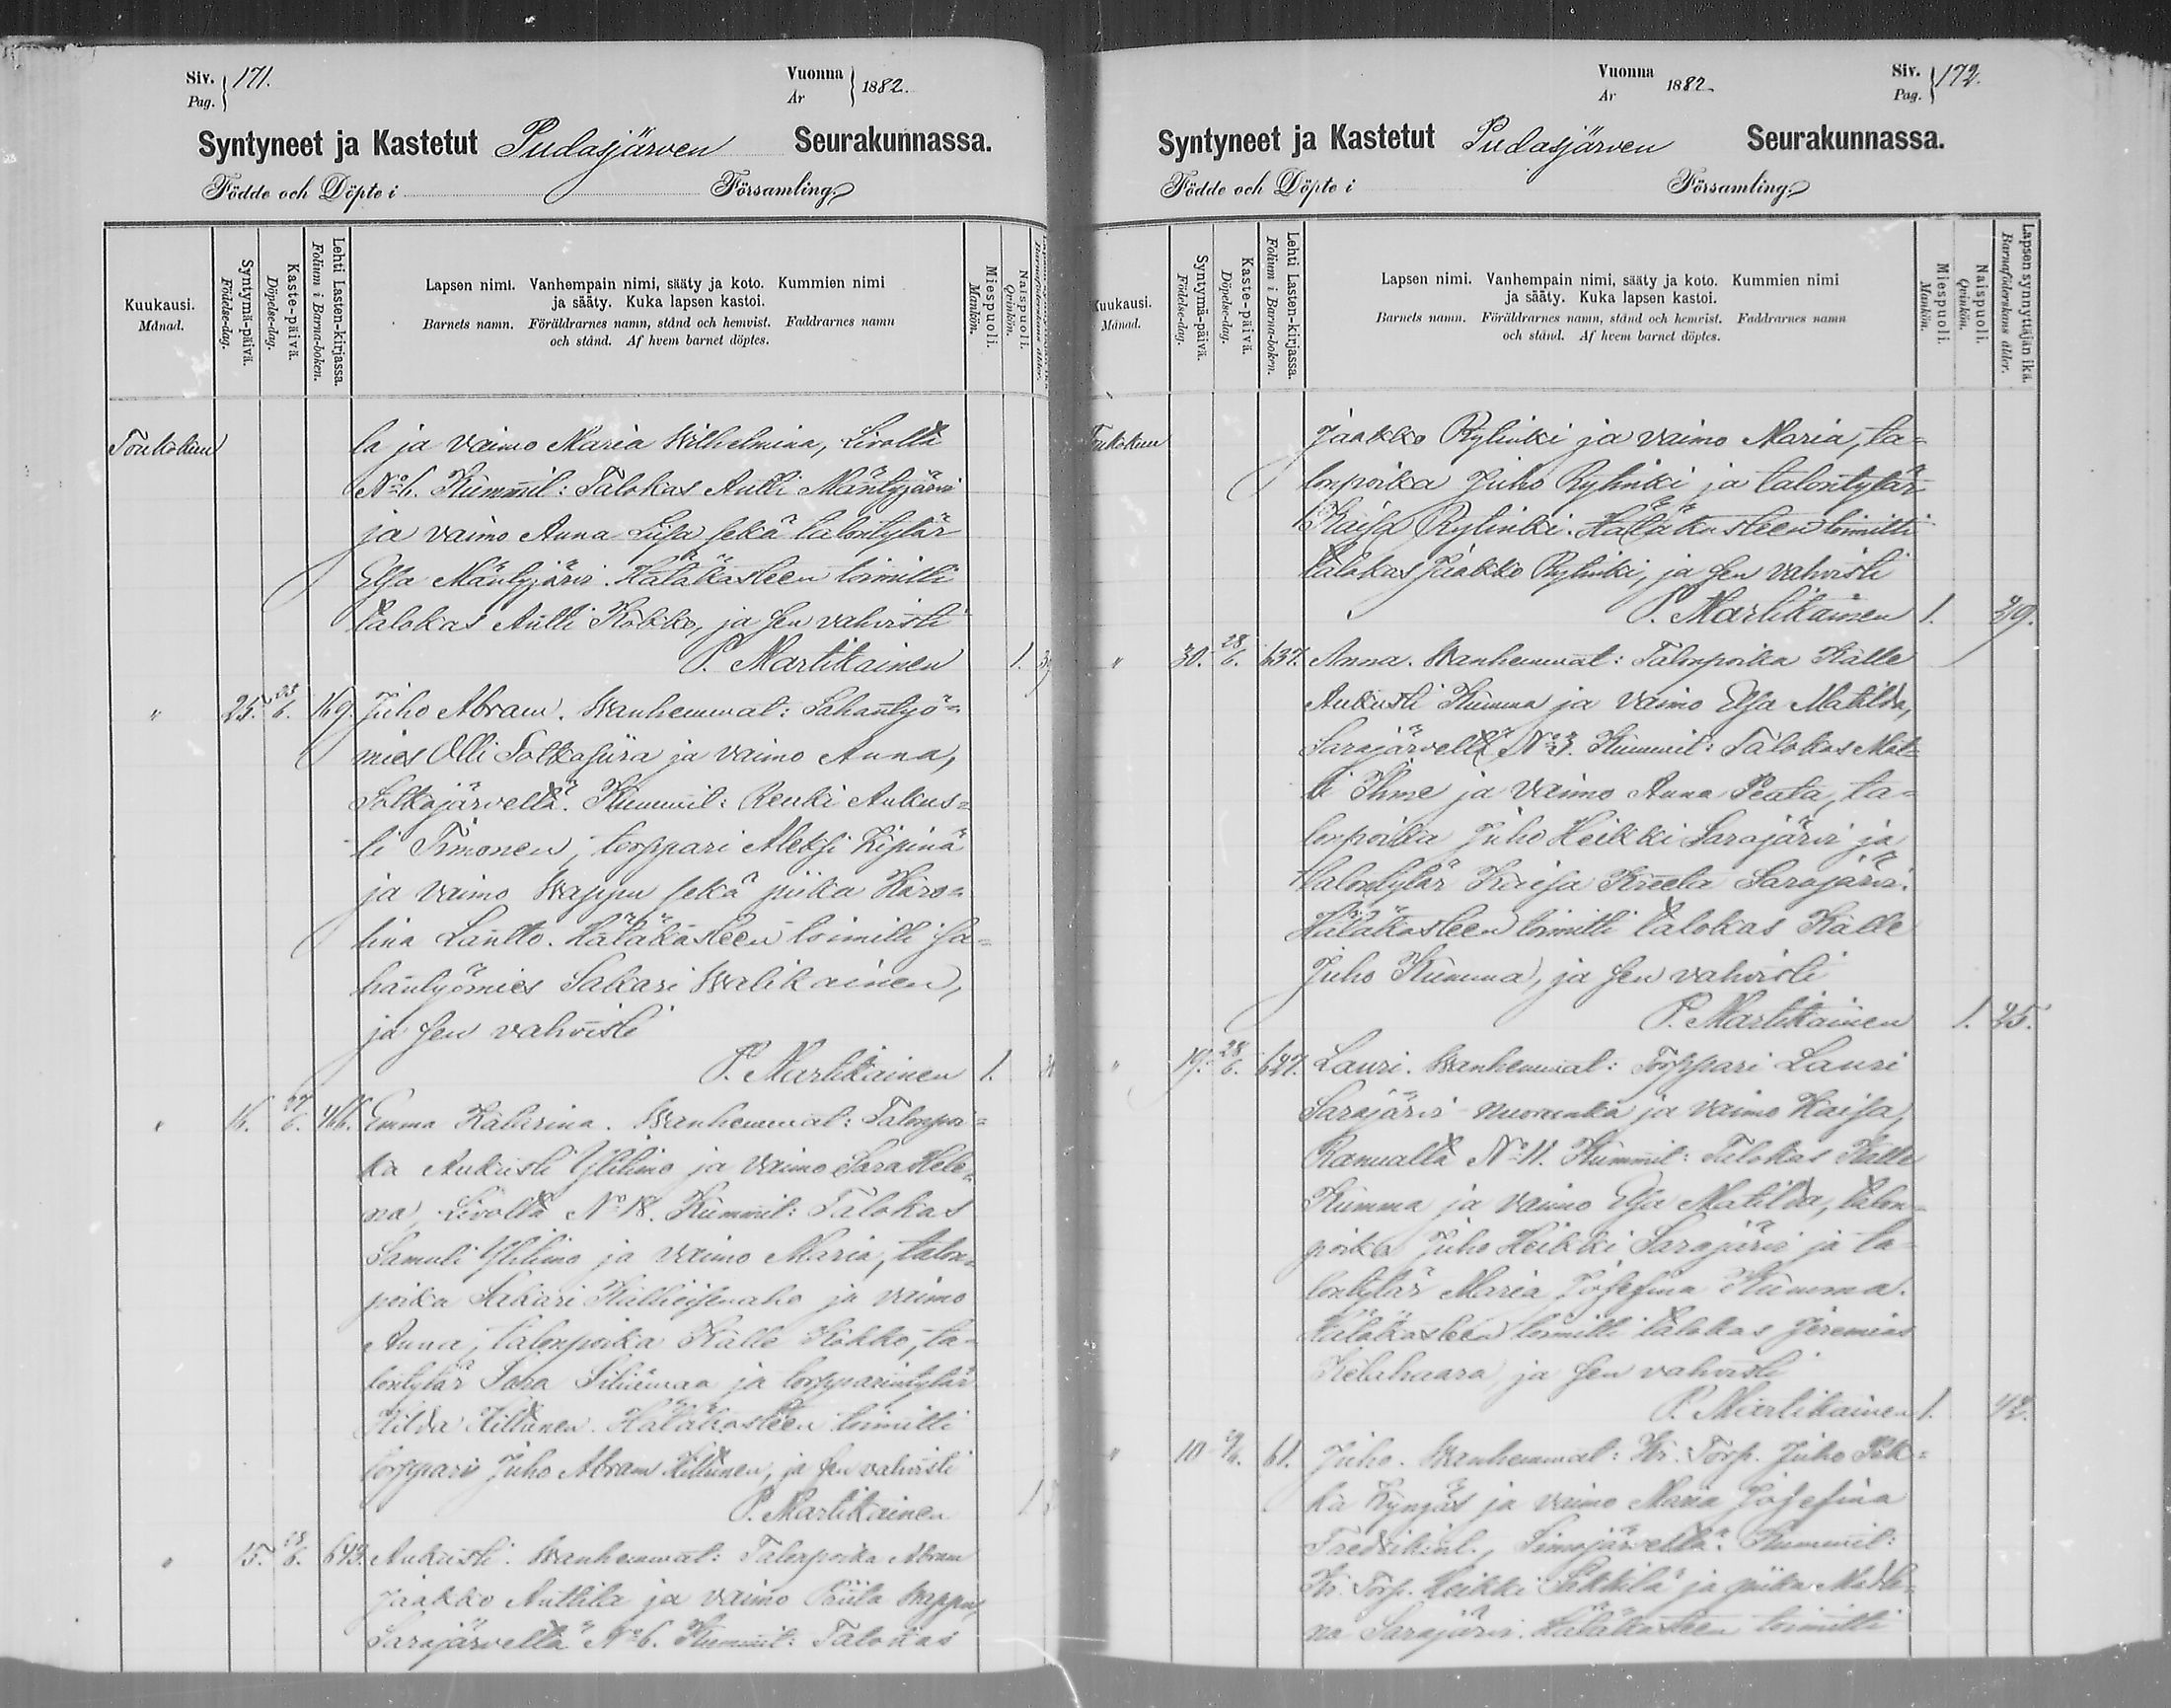 Siv. 171.
Pag.
Vuonna 1882.
År
Syntyneet ja Kastetut Pudasjärven Seurakunnassa.
Födde och Döpte i Församling.
Kuukausi.
Månad.
Syntymä-päivä.
Födelse-dag.
Kaste-päivä.
Döpelse-dag.
Lehti Lasten-kirjassa.
Folium i Barna-boken.
Lapsen nimi. Vanhempain nimi, sääty ja koto. Kummien nimi
ja sääty. Kuka lapsen kastoi.
Barnets namn. Föräldrarnes namn, stånd och hemvist. Faddrarnes namn
och stånd. Af hvem barnet döptes.
Miespuoli.
Mankön.
Naispuoli.
Qvinkön.
Toukokuu la ja vaimo Maria Wilhelmina, Livolla
No 6. Kummit: Talokas Antti Mäntyjärvi
ja vaimo Anna Liisa sekä talontytär
Elsa Mäntyjärvi. Hätäkasteen toimitti
talokas Antti Kokko, ja sen vahvisti
P. Martikainen 1.
" 25. 25/6. 169. Juho Abram. Wanhemmat: Sahantyö=
mies Olli ja vaimo Anna,
Kummit: Renki Aukus=
ti Timonen, torppari Aleksi Kipinä
ja vaimo Wappu sekä piika Karo=
lina Lantto. Hätäkasteen toimitti sa=
hantyömies Sakari Walikainen,
ja sen vahvisti
P. Martikainen 1.
" 16. 27/6. 466. Emma Katarina. Wanhemmat: Talonpoi=
ka Aukusti Ylilimo ja vaimo Sara Hele=
na, Livolla No 18. Kummit: Talokas
Samuli Ylilimo ja vaimo Maria, talon=
poika Sakari ja vaimo
Anna, talonpoika Kalle Kokko, ta=
lontytär ja torpparintytär
Hilda Hiltunen. Hätäkasteen toimitti
torppari Juho Abram Hiltunen, ja sen vahvisti
P. Martikainen 1
" 15. 28/6. 643. Aukusti. Wanhemmat: Talonpoika Abram
Jaakko Anttila ja vaimo Wappu,
Sarajärvellä No 6. Kummit: Talokas
Vuonna 1882.
År
Siv. 172.
Pag.
Syntyneet ja Kastetut Pudasjärven Seurakunnassa.
Födde och Döpte i Församling.
Kuukausi.
Månad.
Syntymä-päivä.
Födelse-dag.
Kaste-päivä.
Döpelse-dag.
Lehti Lasten-kirjassa.
Folium i Barna-boken.
Lapsen nimi. Vanhempain nimi, sääty ja koto. Kummien nimi
ja sääty. Kuka lapsen kastoi.
Barnets namn. Föräldrarnes namn, stånd och hemvist. Faddrarnes namn
och stånd. Af hvem barnet döptes.
Miespuoli.
Mankön.
Naispuoli.
Qvinkön.
Lapsen synnyttäjän ikä.
Barnaföderskans ålder.
Toukokuu Jaakko Rytinki ja vaimo Maria, ta=
lonpoika Juho Rytinki ja talontytär
Kaisa Rytinki. Hätäkasteen toimitti
talokas Jaakko Rytinki, ja sen vahvisti
P. Martikainen 1. 29.
" 30. 28/6. 637. Anna. Wanhemmat: Talonpoika Kalle
Aukusti Kumma ja vaimo Elsa Matilda,
Sarajärvellä No 3. Kummit: Talokas Mat=
ti Ihme ja vaimo Anna Reeta, ta=
lonpoika Juho Heikki Sarajärvi ja
talontytär Kaisa Kreeta Sarajärvi.
Hätäkasteen toimitti talokas Kalle
Juho Kumma, ja sen vahvisti
P. Martikainen 1. 45.
" 19. 28/6. 647. Lauri. Wanhemmat: Torppari Lauri
Sarajärvi nuorenka ja vaimo Kaisa,
Ranualla No 11. Kummit: Talokas Kalle
Kumma ja vaimo Elsa Matilda, talon=
poika Juho Heikki Sarajärvi ja ta=
lontytär Maria Josefina Kumma.
Hätäkasteen toimitti talokas Jeremias
Kelahaara, ja sen vahvisti
P. Martikainen 1. 42.
" 10 61. Juho. Wanhemmat: Kr. Torp. Juho Pek=
ka Kyngäs ja vaimo Maria Josefina
Fredrikint., Simojärvellä. Kummit:
Kr. Torp. Heikki ja piika Madle=
na Sarajärvi. Hätäkasteen toimitti